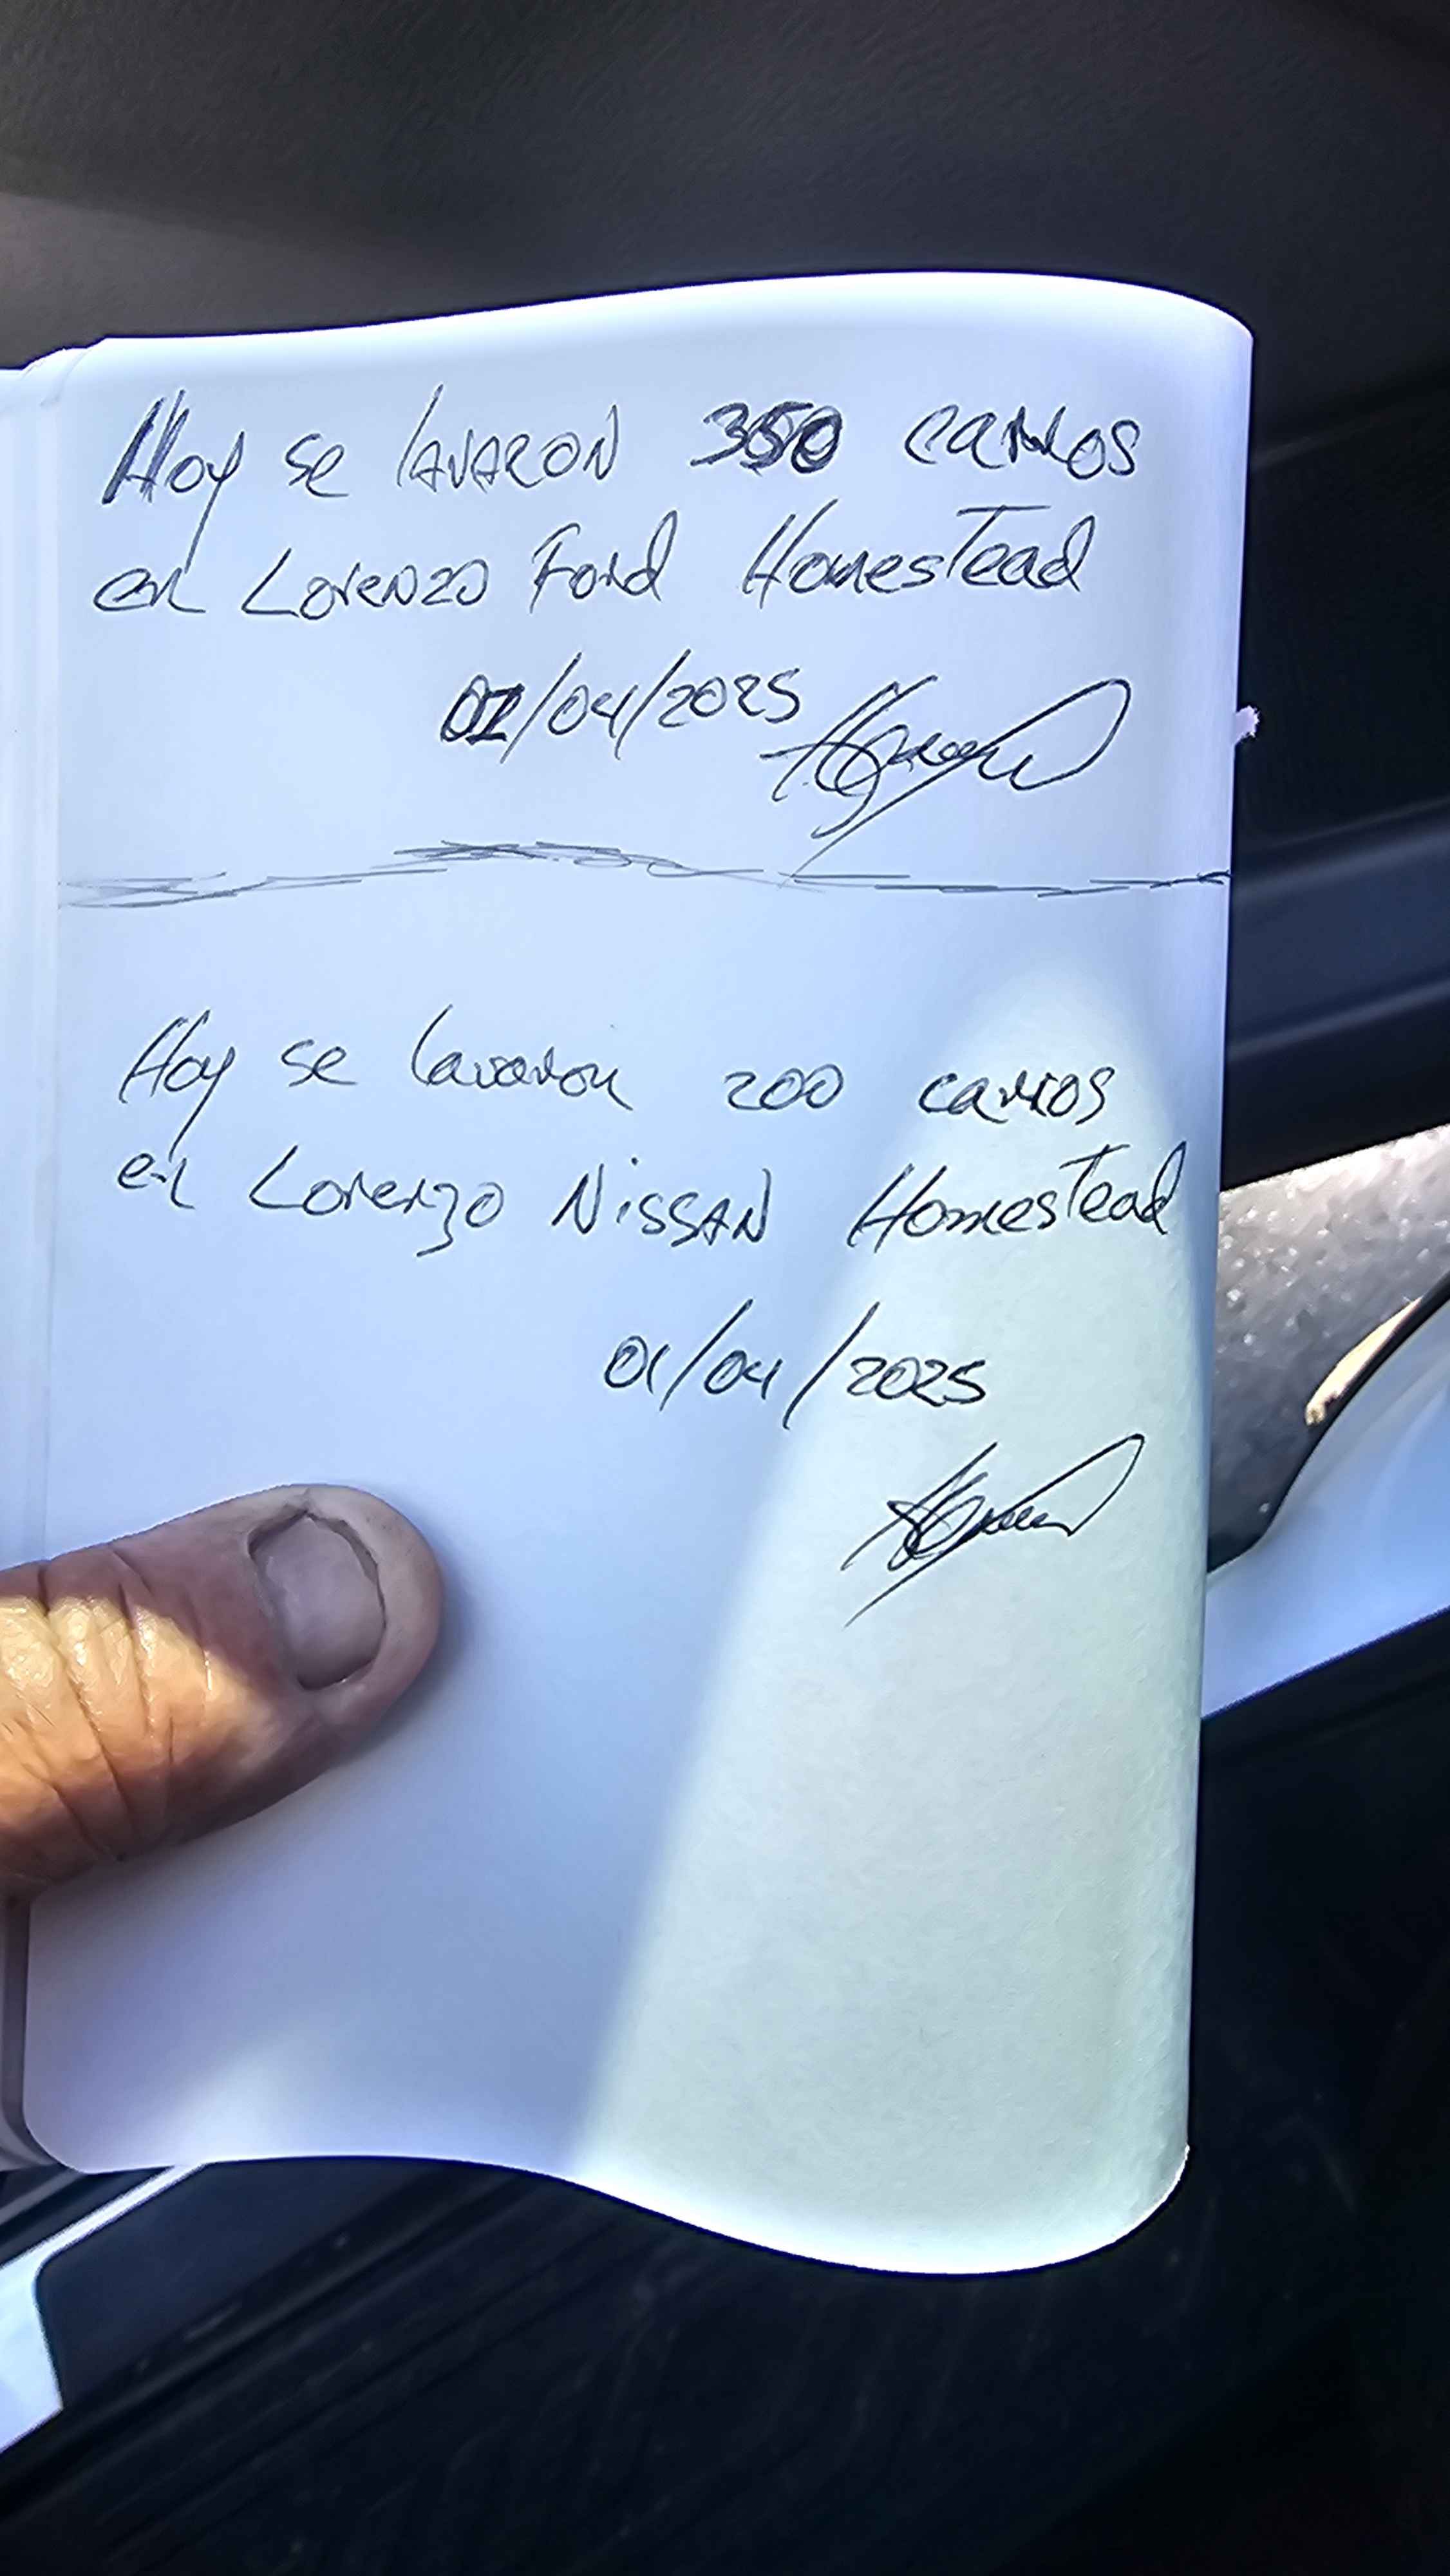 Hoy se lavaron 350 carros
en Lorenzo Ford Homestead
01/04/2025
Hoy se lavaron 200 carros
en Lorenzo Nissan Homestead
01/04/2025